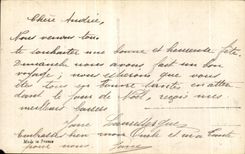 Chère Andrée,
Nous venons tous
te souhaiter une bonne et heureuse fête
Dimanche nous avons fait un bon
voyage; nous espérons que vous
êtes tous en bonne santé en attendant
dans le jour de Noël, reçois mes
meilleurs baisers
Jane
Embrasse bien mon Oncle et ma Tante
pour nous Jane
Made in France